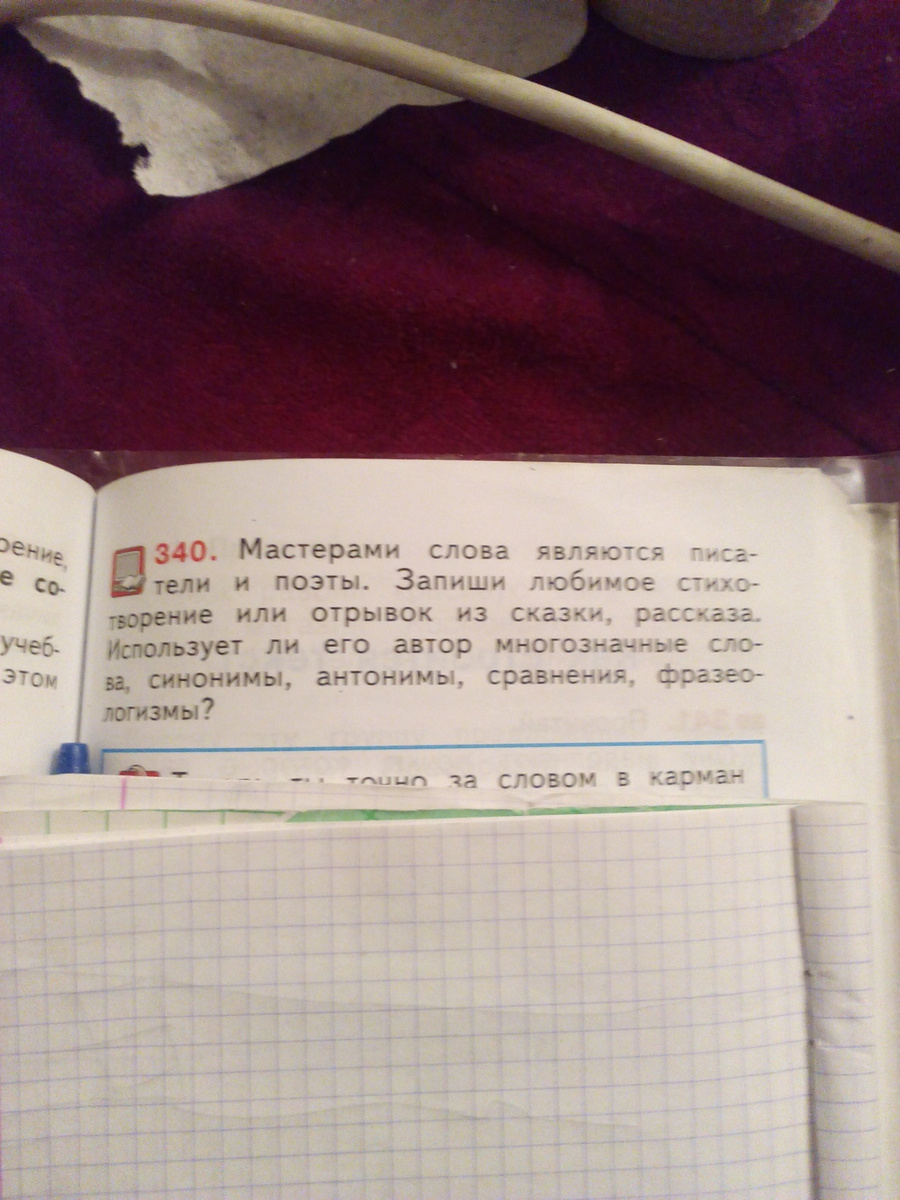 рение,
е со-
учеб-
этом
340. Мастерами слова являются писа-
тели и поэты. Запиши любимое стихо-
творение или отрывок из сказки, рассказа.
Использует ли его автор многозначные сло-
ва, синонимы, антонимы, сравнения, фразео-
логизмы?
точно за словом в карман